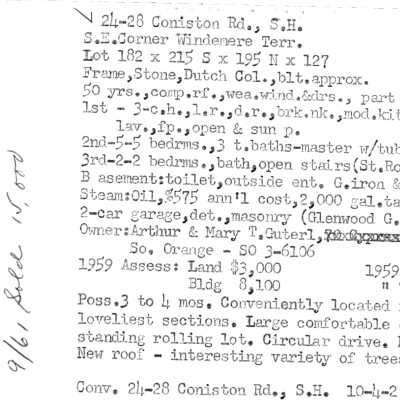 ✓ 24-28 Coniston Rd., S.H.
S.E.Corner Windemere Terr.
Lot 182 x 215 S x 195 N x 127
Frame,Stone,Dutch Col.,blt.approx.
50 yrs.,comp.rf.,wea.wind.&drs., part
1st - 3-c.h.,l.r.,d.r.,brk.nk.,mod.kit
lav.,fp.,open & sun p.
2nd-5-5 bedrms.,3 t.baths-master w/tub
3rd-2-2 bedrms.,bath,open stairs(St.Ro
B asement:toilet,outside ent. G.iron &
Steam:Oil,$575 ann'l cost,2,000 gal.ta
2-car garage,det.,masonry (Glenwood G.
Owner:Arthur & Mary T.Guterl,
So. Orange - SO 3-6106
1959 Assess: Land $3,000 1959
Bldg 8,100 "
Poss.3 to 4 mos. Conveniently located
loveliest sections. Large comfortable
standing rolling lot. Circular drive.
New roof - interesting variety of trees
Conv. 24-28 Coniston Rd., S.H. 10-4-2
9/61 Sold 15,000